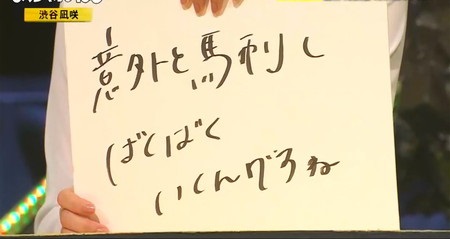 渋谷凪咲
意外と馬刺し
ばくばく
いくんですね